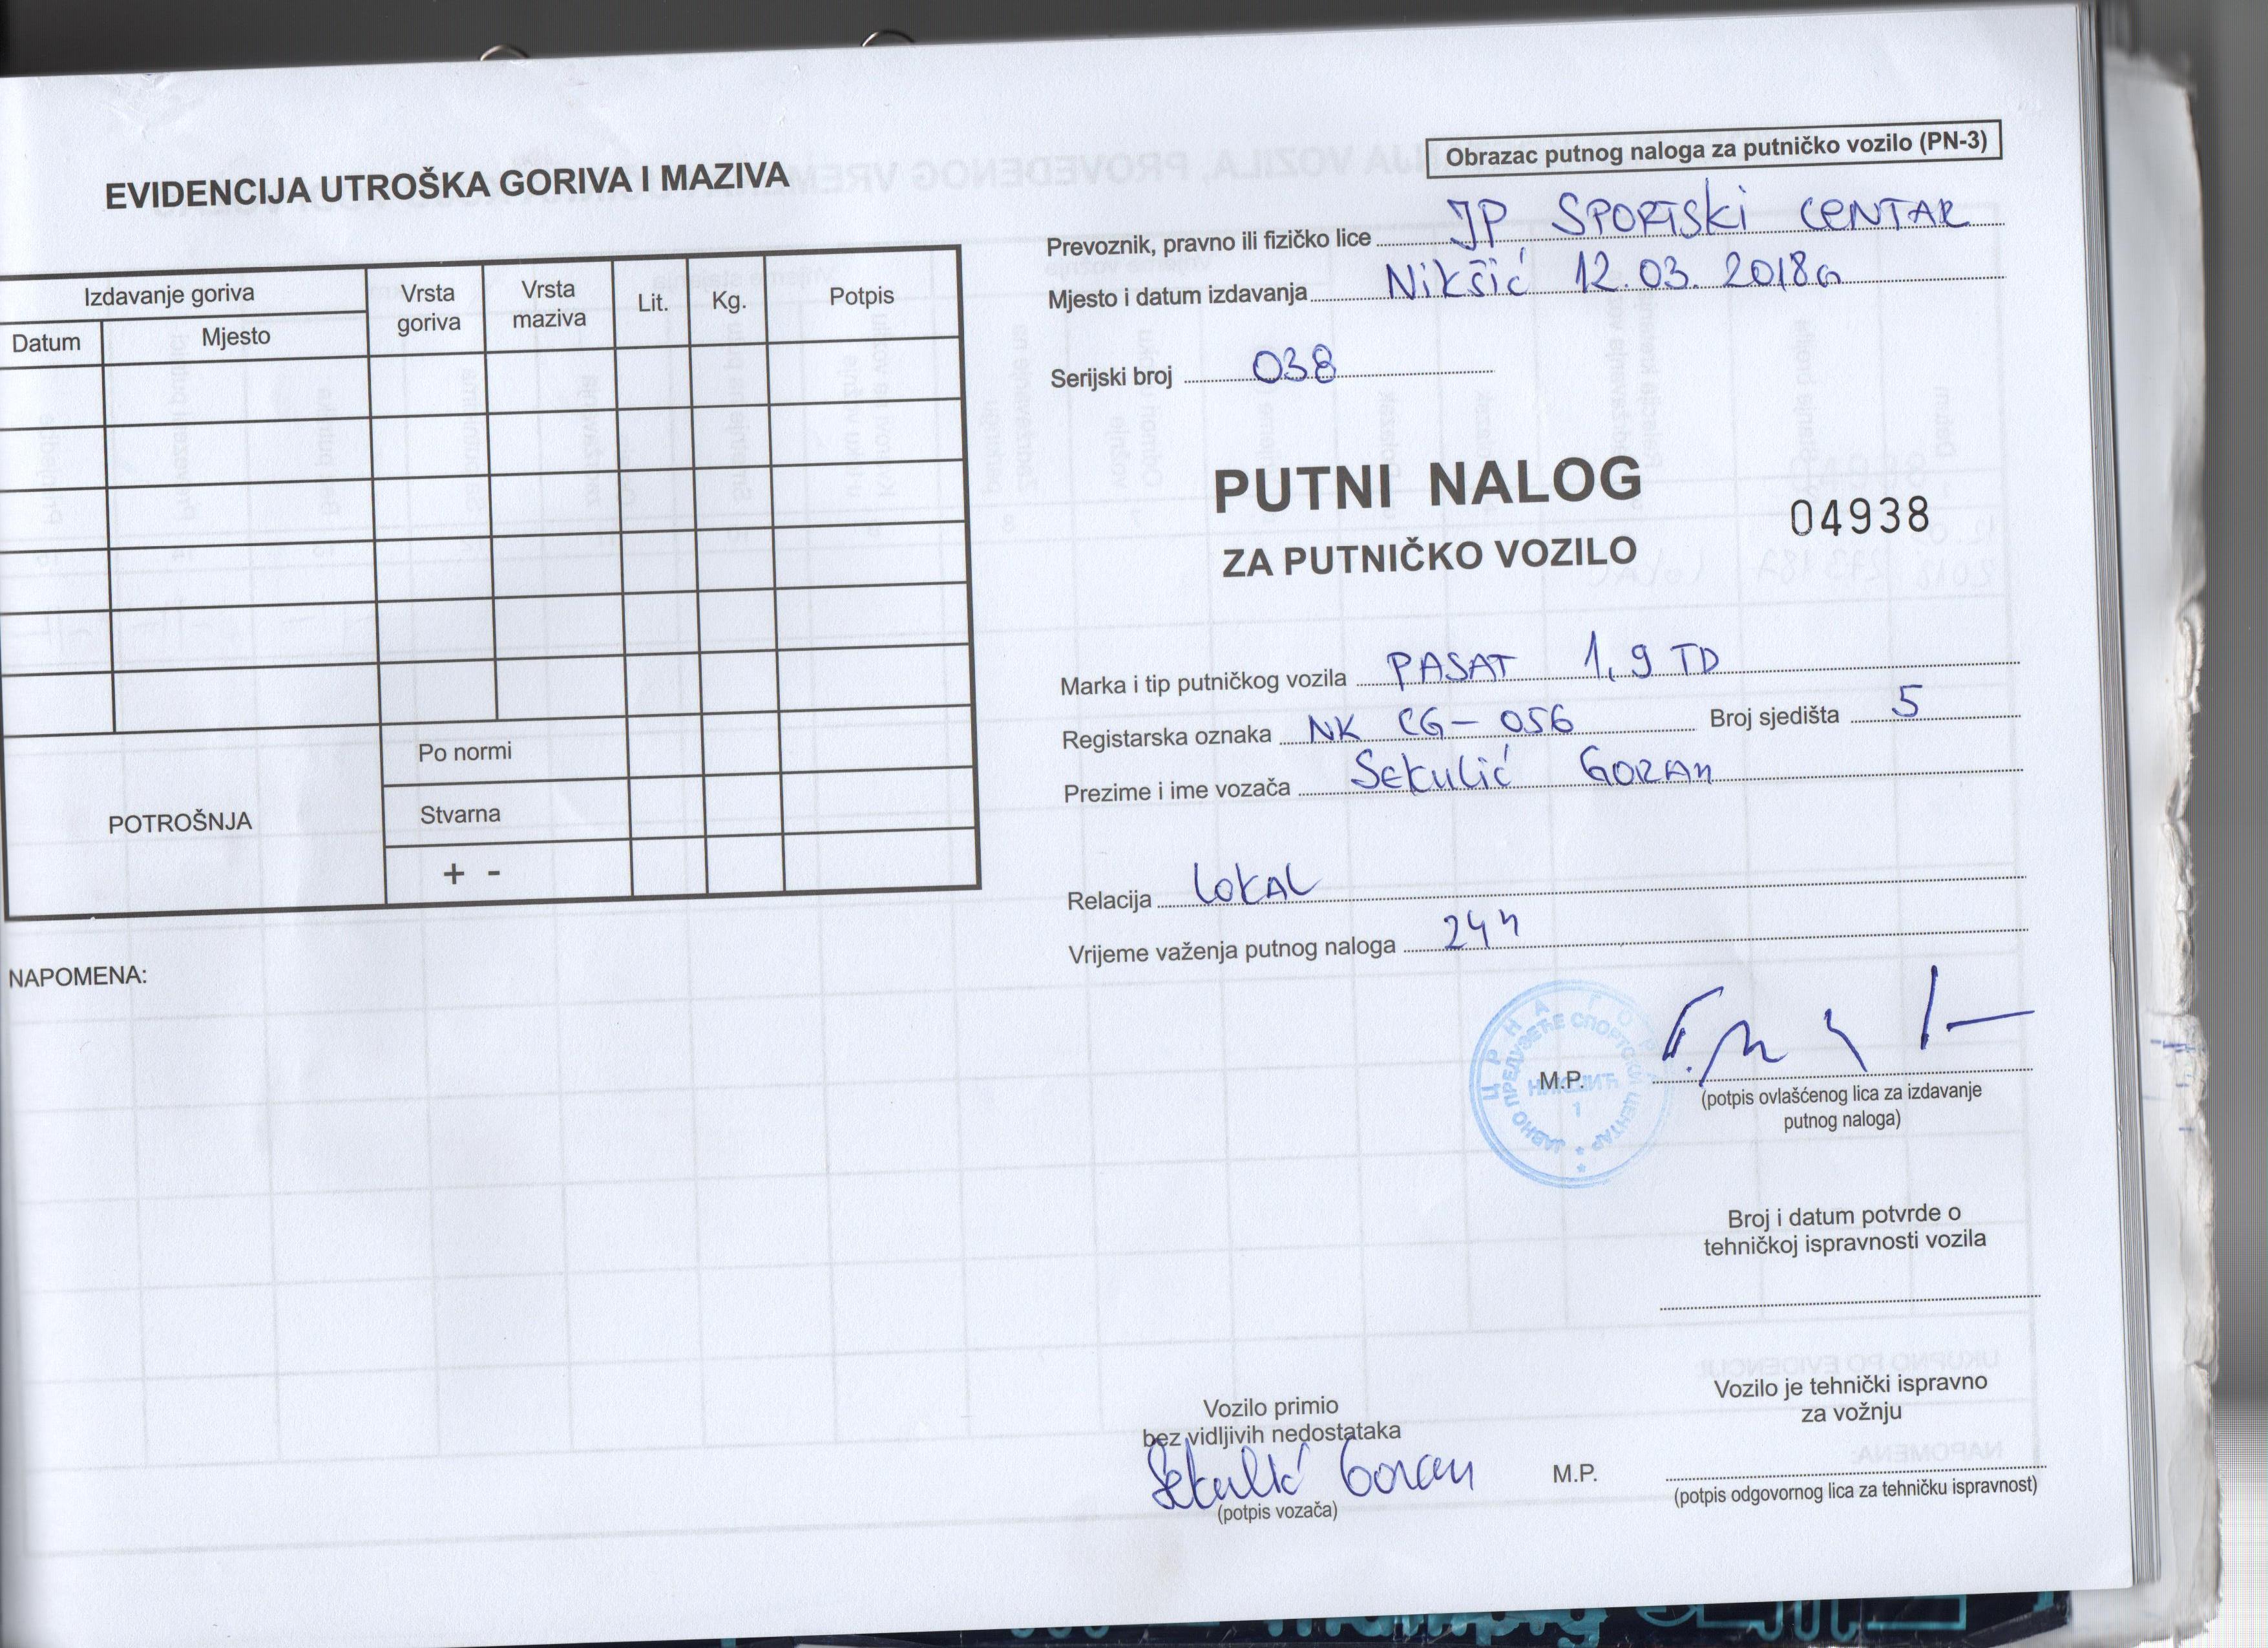 EVIDENCIJA UTROŠKA GORIVA I MAZIVA
Izdavanje goriva
Datum
Mjesto
Vrsta goriva
Vrsta maziva
Lit.
Kg.
Potpis
POTROŠNJA
Po normi
Stvarna
+ -
NAPOMENA:
Obrazac putnog naloga za putničko vozilo (PN-3)
Prevoznik, pravno ili fizičko lice JP SPORTSKI CENTAR
Mjesto i datum izdavanja Nikšić 12.03. 2018G
Serijski broj 038
PUTNI NALOG
04938
ZA PUTNIČKO VOZILO
Marka i tip putničkog vozila PASAT 1,9 TD
Registarska oznaka NK CG-056 Broj sjedišta 5
Prezime i ime vozača Sekulić Goran
Relacija LOKAL
Vrijeme važenja putnog naloga 24h
ЦРНА ГОРА
ЈАВНО ПРЕДУЗЕЋЕ СПОРТСКИ ЦЕНТАР
НИКШИЋ
1
M.P.
(potpis ovlašćenog lica za izdavanje
putnog naloga)
Broj i datum potvrde o
tehničkoj ispravnosti vozila
Vozilo primio
bez vidljivih nedostataka
Sekulić Goran
(potpis vozača)
Vozilo je tehnički ispravno
za vožnju
M.P.
(potpis odgovornog lica za tehničku ispravnost)